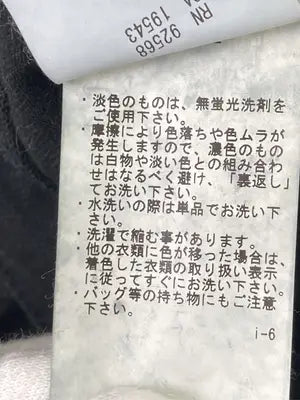 RN 92568
19543
・淡色のものは、無蛍光洗剤を
ご使用下さい。
・摩擦により色落ちや色ムラが
発生しますので、濃色のもの
は白物や淡い色との組み合わ
せはなるべく避け、「裏返し」
てお洗い下さい。
・水洗いの際は単品でお洗い下
さい。
・洗濯で縮む事があります。
・他の衣類に色が移った場合は、
着色した衣類の取り扱い表示
に従ってすぐにお洗い下さい。
・バッグ等の持ち物にもご注意
下さい。
i-6